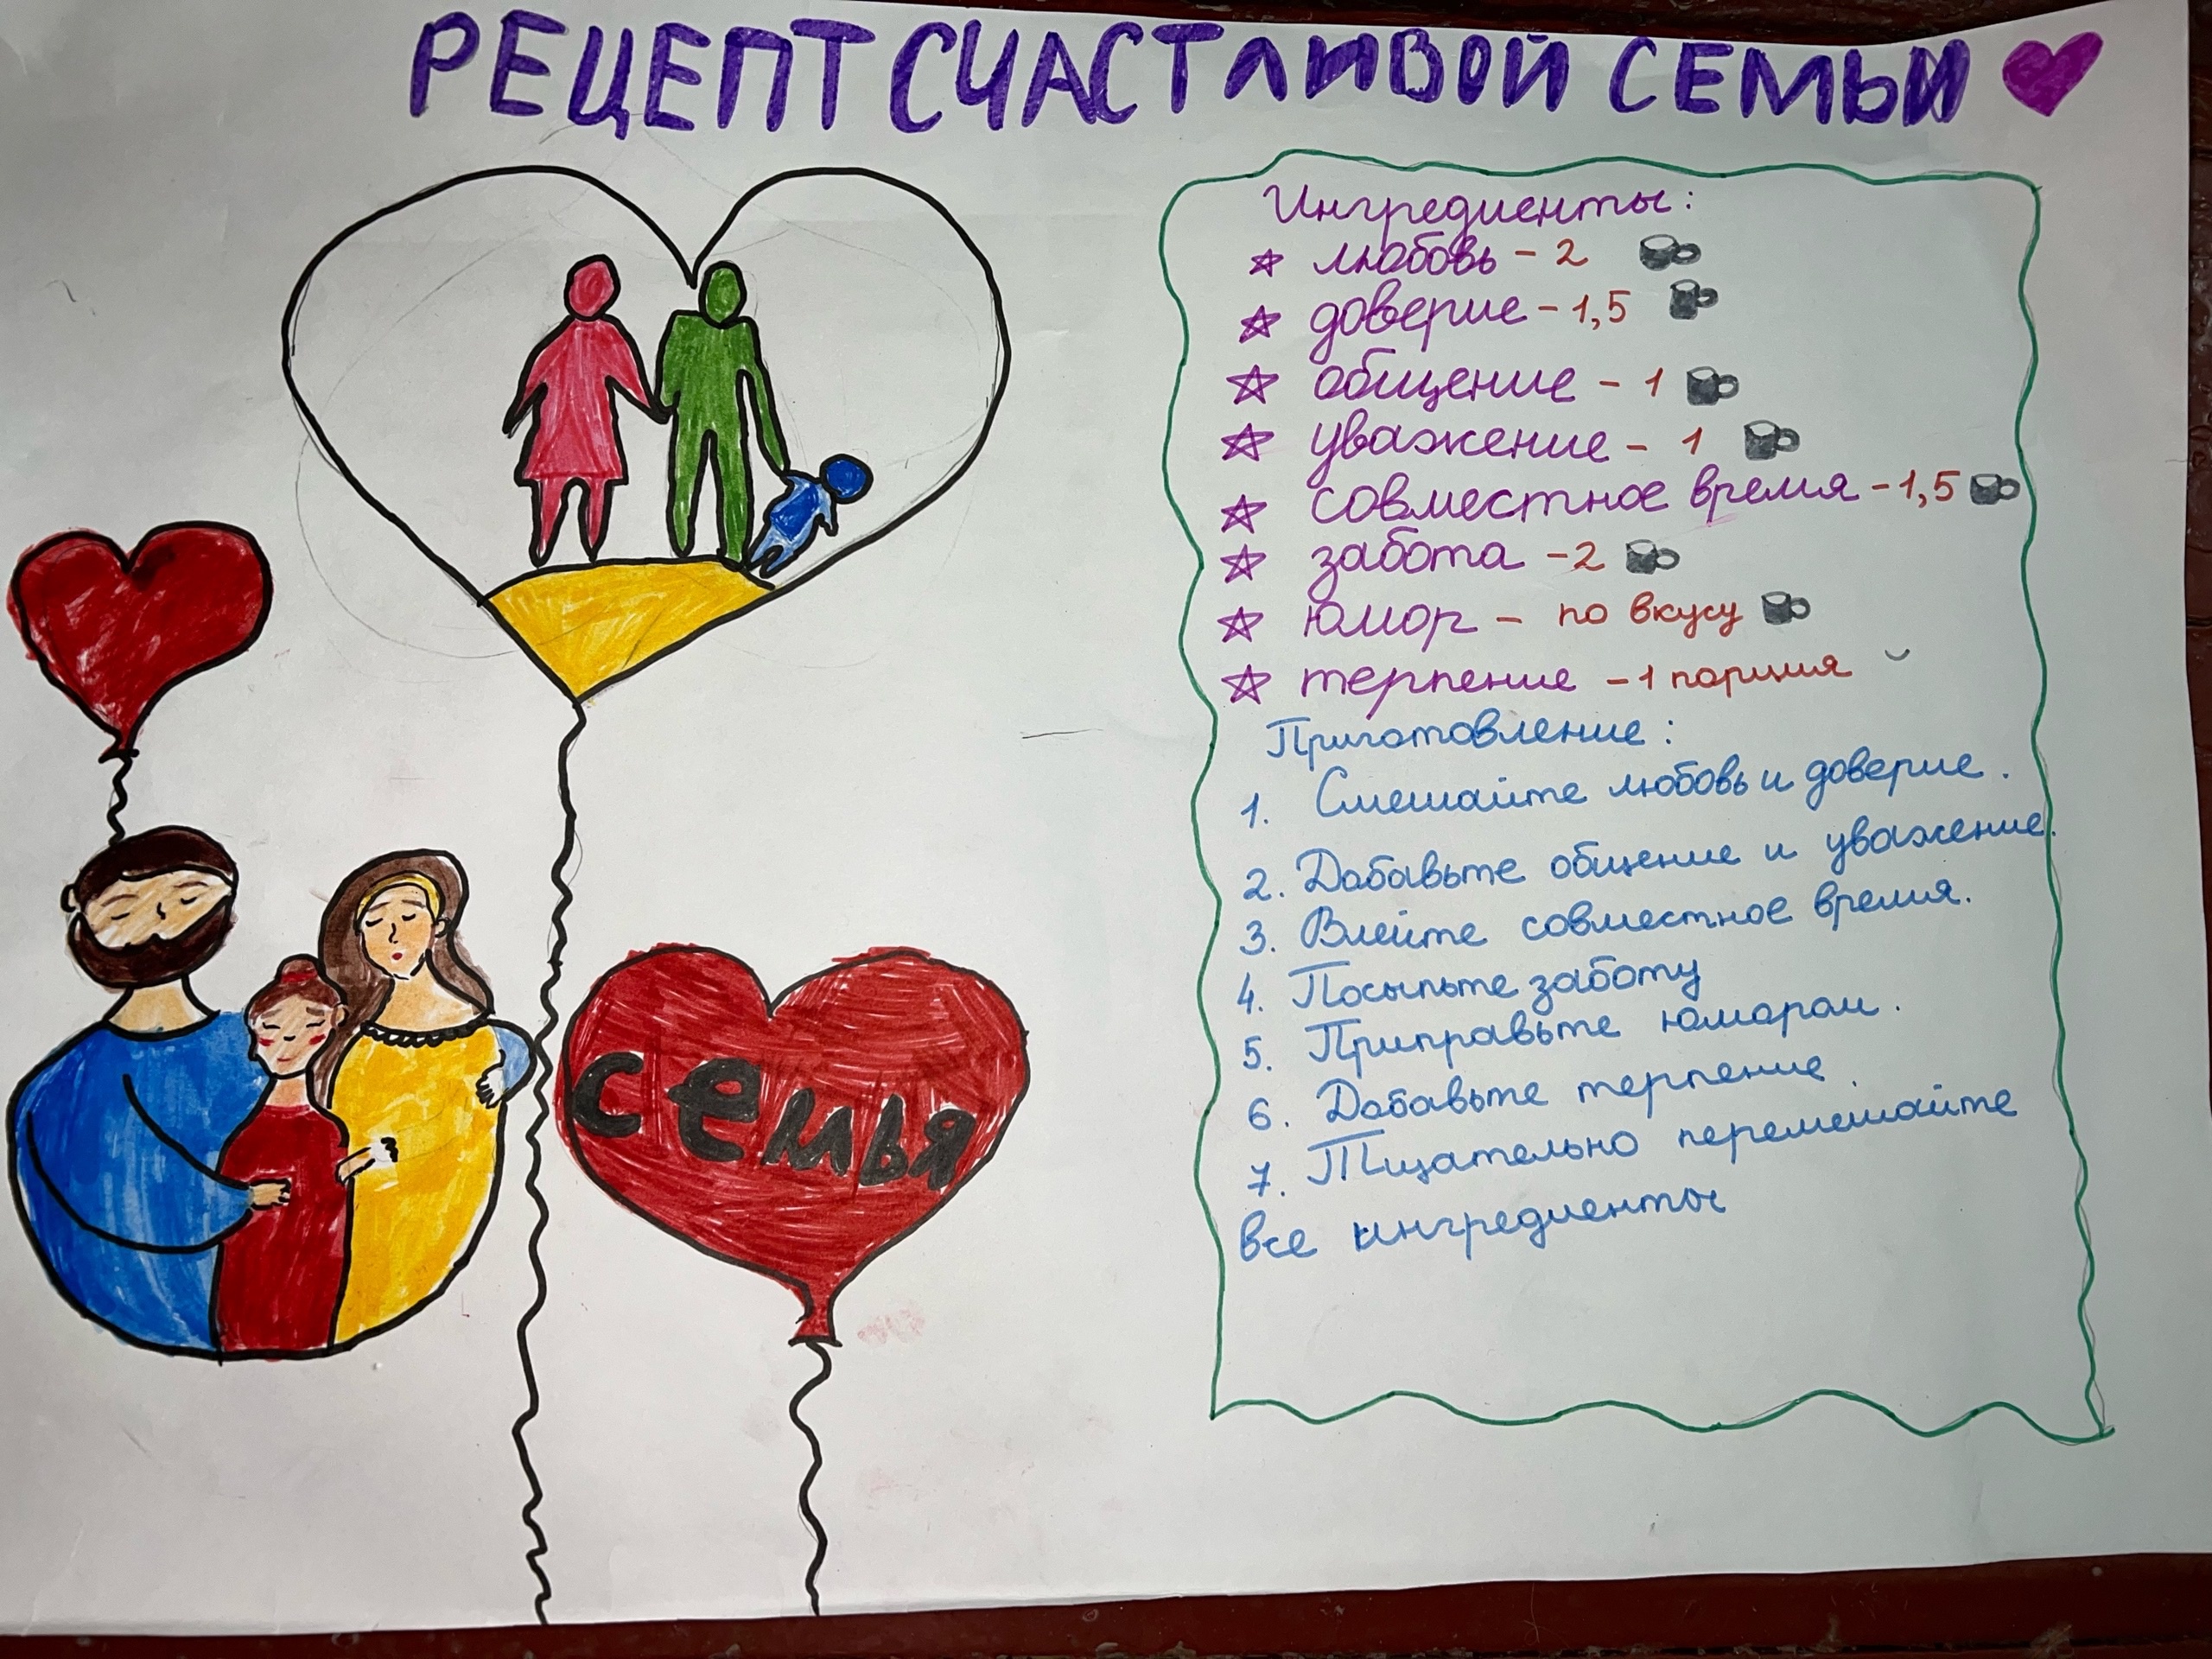 РЕЦЕПТ СЧАСТЛИВОЙ СЕМЬИ
Ингредиенты:
любовь - 2
доверие - 1,5
общение - 1
уважение - 1
совместное время - 1,5
забота - 2
юмор - по вкусу
терпение - 1 порция
Приготовление:
1. Смешайте любовь и доверие.
2. Добавьте общение и уважение.
3. Влейте совместное время.
4. Посыпьте заботу
5. Приправьте юмором.
6. Добавьте терпение.
7. Тщательно перемешайте
все ингредиенты
семья